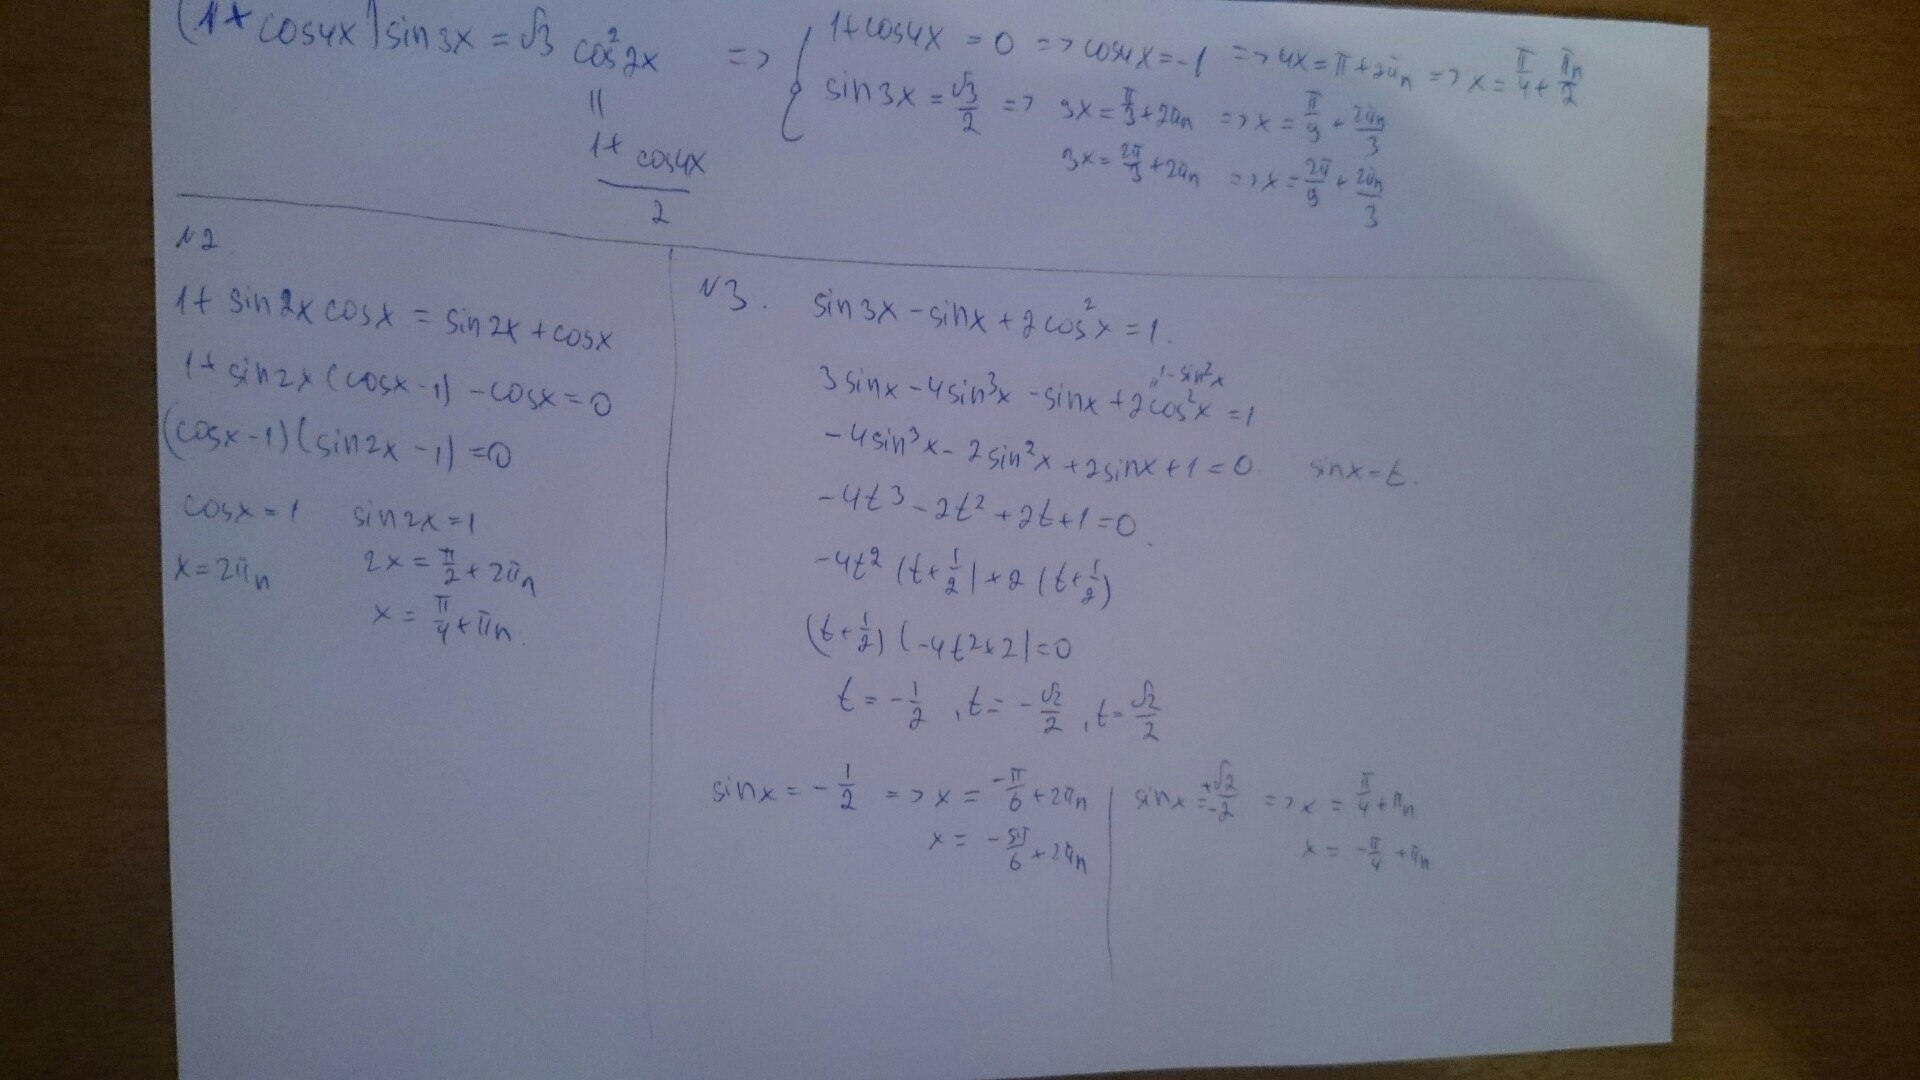 (1+cos4x)sin3x = √3 cos²2x => { 1+cos4x = 0 => cos4x = -1 => 4x = π+2πn => x = π/4 + πn/2
||
(1+cos4x)/2
sin3x = √3/2 => 3x = π/3 + 2πn => x = π/9 + 2πn/3
3x = 2π/3 + 2πn => x = 2π/9 + 2πn/3
N2
1+ sin2x cosx = sin2x + cosx
1+ sin2x (cosx-1) - cosx = 0
(cosx-1)(sin2x-1) = 0
cosx = 1 sin2x = 1
x = 2πn 2x = π/2 + 2πn
x = π/4 + πn.
N3. sin3x - sinx + 2cos²x = 1.
1-sin²x
3sinx - 4sin³x - sinx + 2cos²x = 1
-4sin³x - 2sin²x + 2sinx + 1 = 0. sinx = t.
-4t³ - 2t² + 2t + 1 = 0.
-4t² (t+1/2) + 2 (t+1/2)
(t+1/2) (-4t²+2) = 0
t = -1/2 , t = -√2/2 , t = √2/2
sinx = -1/2 => x = -π/6 + 2πn
x = -5π/6 + 2πn
sinx = ±√2/2 => x = π/4 + πn
x = -π/4 + πn